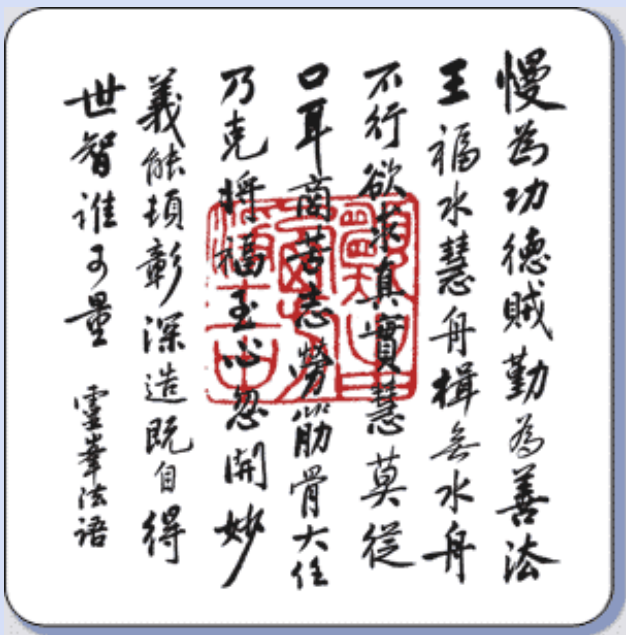 慢為功德賊勤為善法
王福水慧舟楫無水舟
不行欲求真實慧莫從
口耳商苦志勞筋骨大任
乃克將福至心忽開妙
義能頓彰深造既自得
世智誰可量
靈峯法語